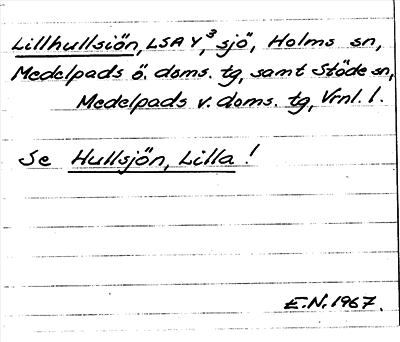 Lillhullsiön, LSA Y,³ sjö, Holms sn,
Medelpads ö. doms. tg, samt Stöde sn,
Medelpads v. doms. tg, Vrnl. l.
Se Hullsjön, Lilla !
E.N. 1967.